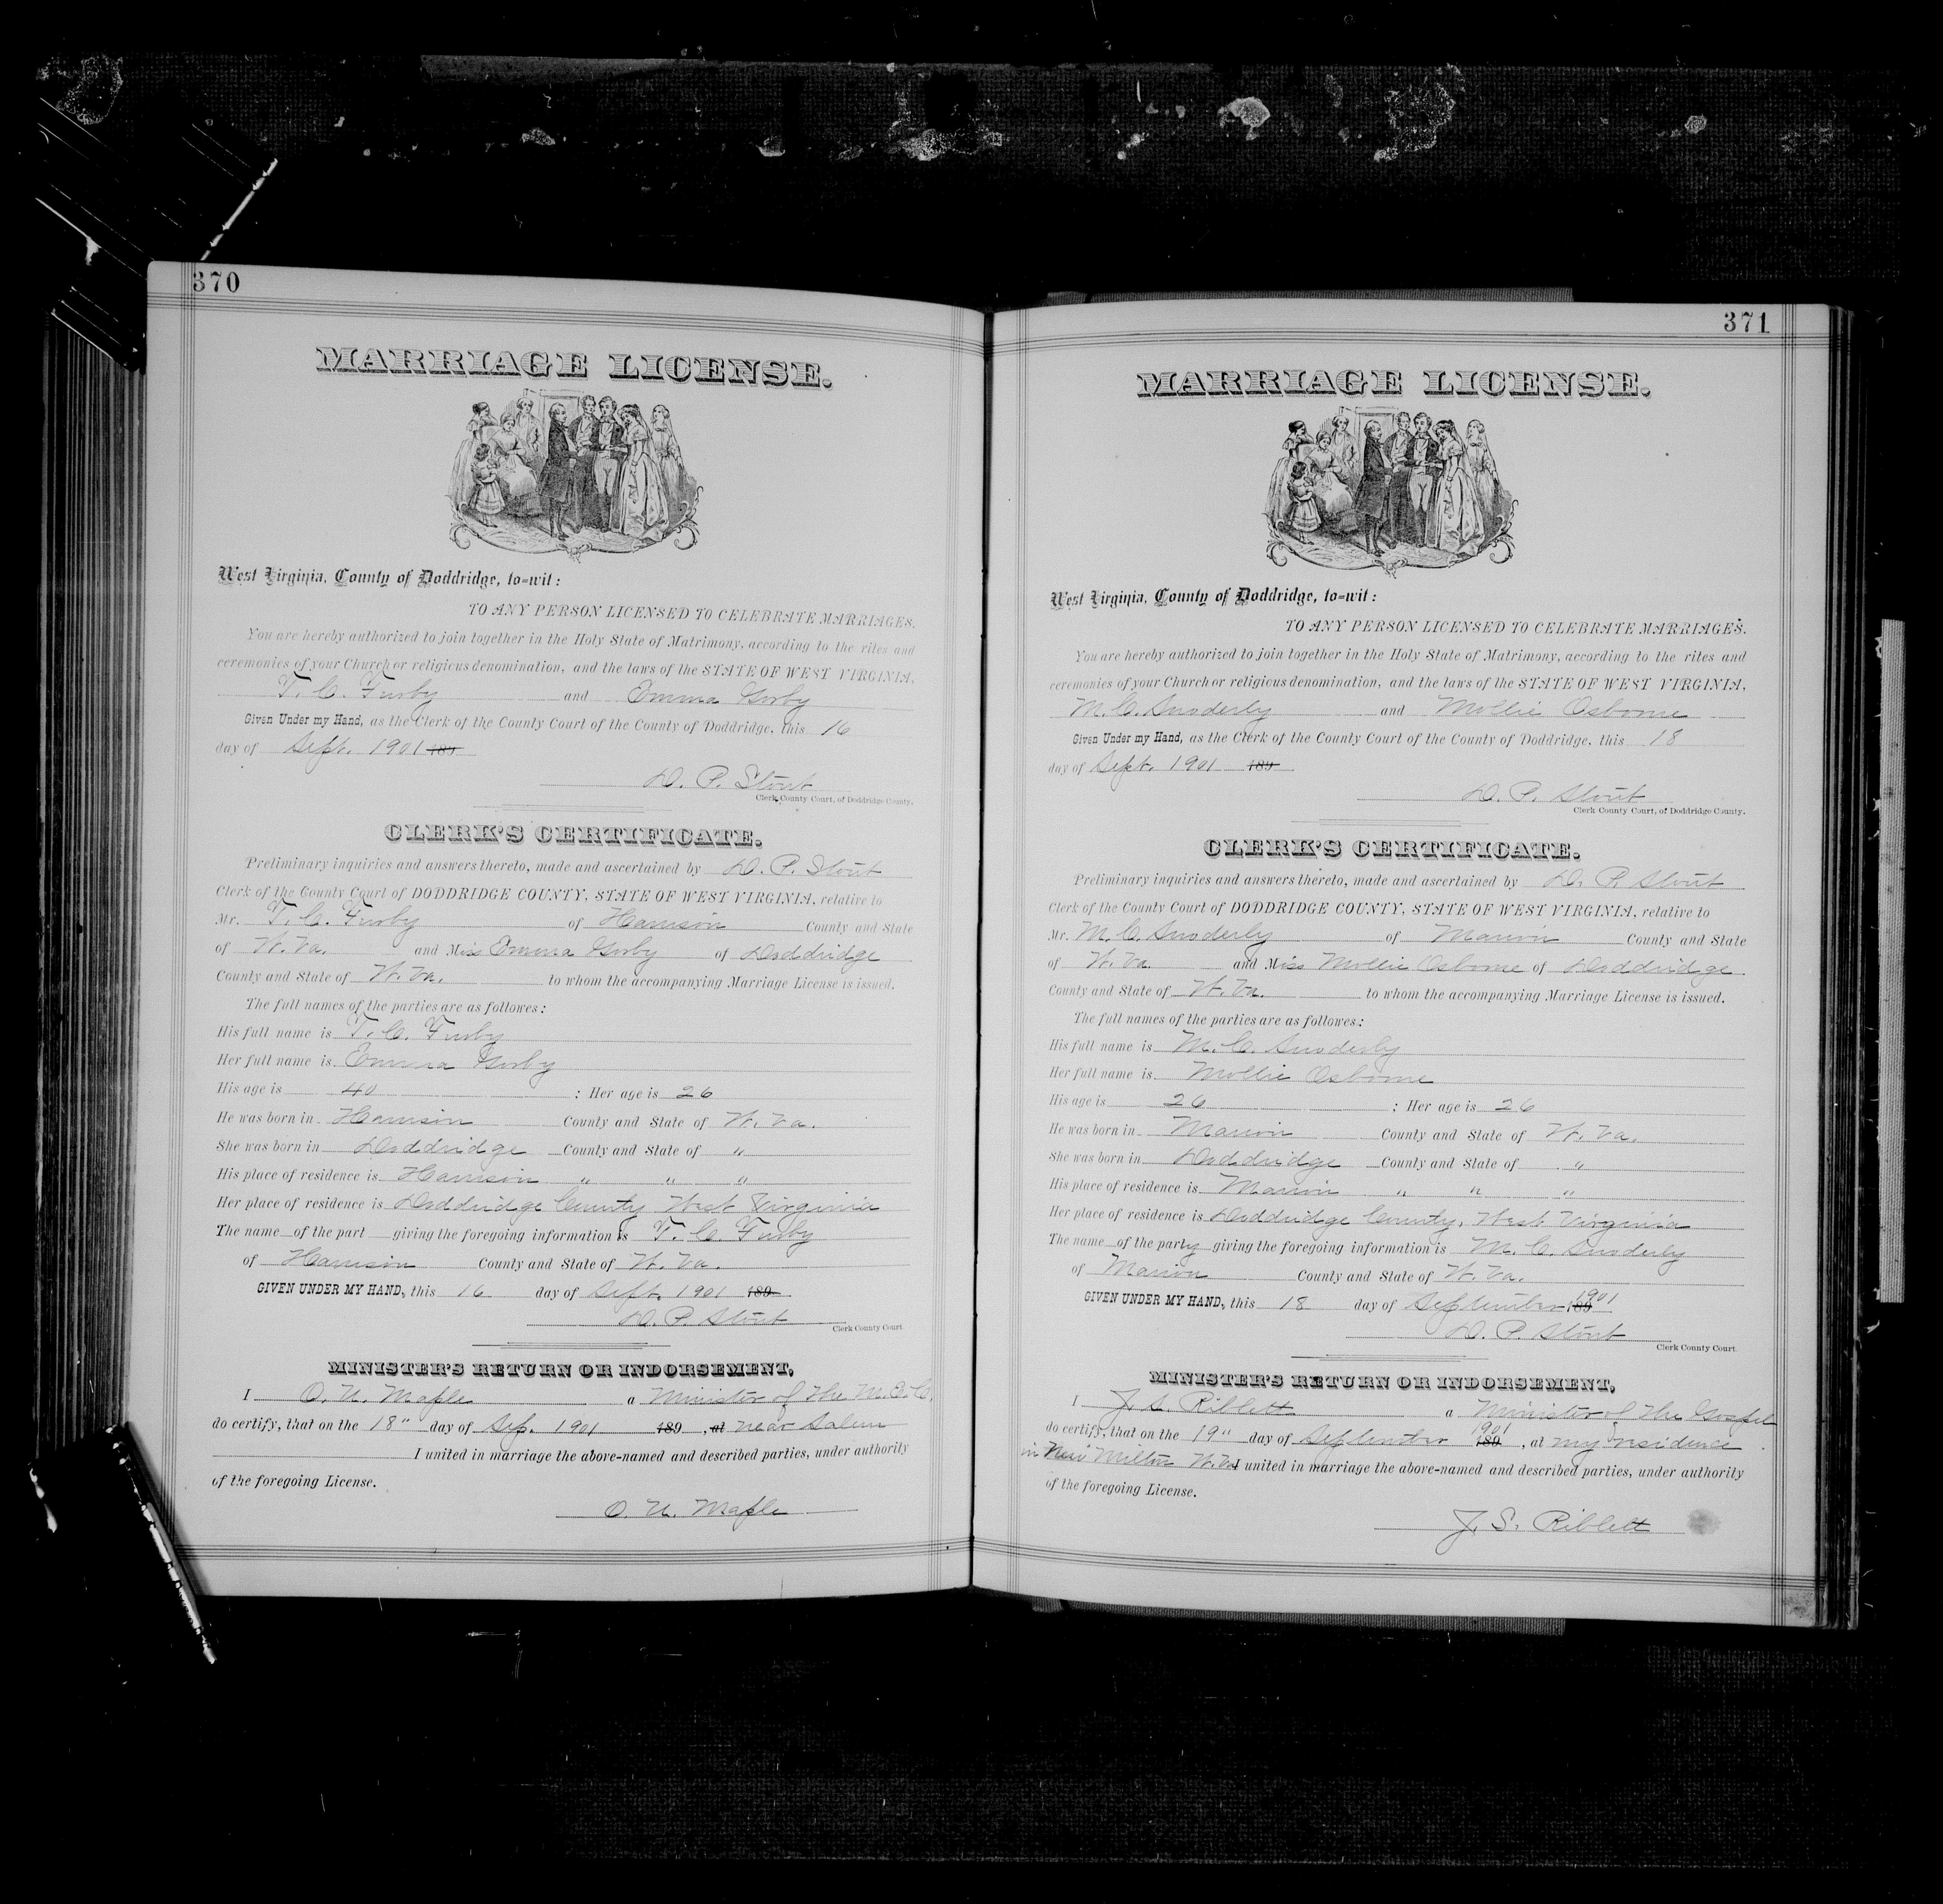 370
MARRIAGE LICENSE.
West Virginia, County of Doddridge, to=wit:
TO ANY PERSON LICENSED TO CELEBRATE MARRIAGES.
You are hereby authorized to join together in the Holy State of Matrimony, according to the rites and
ceremonies of your Church or religious denomination, and the laws of the STATE OF WEST VIRGINIA,
T. C. Furby and Emma Gorby
Given Under my Hand, as the Clerk of the County Court of the County of Doddridge, this 16
day of Sept. 1901 189
D. P. Stout
Clerk County Court, of Doddridge County.
CLERK'S CERTIFICATE.
Preliminary inquiries and answers thereto, made and ascertained by D. P. Stout
Clerk of the County Court of DODDRIDGE COUNTY, STATE OF WEST VIRGINIA, relative to
Mr. T. C. Furby of Harrison County and State
of W. Va. and Miss Emma Gorby of Doddridge
County and State of W. Va. to whom the accompanying Marriage License is issued.
The full names of the parties are as followes:
His full name is T. C. Furby
Her full name is Emma Gorby
His age is 40 : Her age is 26
He was born in Harrison County and State of W. Va.
She was born in Doddridge County and State of "
His place of residence is Harrison " " "
Her place of residence is Doddridge County West Virginia
The name of the part giving the foregoing information is T. C. Furby
of Harrison County and State of W. Va.
GIVEN UNDER MY HAND, this 16 day of Sept. 1901 189
D. P. Stout
Clerk County Court.
MINISTER'S RETURN OR INDORSEMENT,
I O. U. Maple a Minister of the M. E. C.
do certify, that on the 18" day of Sep. 1901 189 , at near Salem
I united in marriage the above-named and described parties, under authority
of the foregoing License.
O. U. Maple
371
MARRIAGE LICENSE.
West Virginia, County of Doddridge, to=wit:
TO ANY PERSON LICENSED TO CELEBRATE MARRIAGES.
You are hereby authorized to join together in the Holy State of Matrimony, according to the rites and
ceremonies of your Church or religious denomination, and the laws of the STATE OF WEST VIRGINIA,
M. C. Snoderly and Mollie Osborne
Given Under my Hand, as the Clerk of the County Court of the County of Doddridge, this 18
day of Sept. 1901 189
D. P. Stout
Clerk County Court, of Doddridge County.
CLERK'S CERTIFICATE.
Preliminary inquiries and answers thereto, made and ascertained by D. P. Stout
Clerk of the County Court of DODDRIDGE COUNTY, STATE OF WEST VIRGINIA, relative to
Mr. M. C. Snoderly of Marion County and State
of W. Va. and Miss Mollie Osborne of Doddridge
County and State of W. Va. to whom the accompanying Marriage License is issued.
The full names of the parties are as followes:
His full name is M. C. Snoderly
Her full name is Mollie Osborne
His age is 26 : Her age is 26
He was born in Marion County and State of W. Va.
She was born in Doddridge County and State of "
His place of residence is Marion " " "
Her place of residence is Doddridge County, West Virginia
The name of the party giving the foregoing information is M. C. Snoderly
of Marion County and State of W. Va.
GIVEN UNDER MY HAND, this 18 day of September 189 1901
D. P. Stout
Clerk County Court.
MINISTER'S RETURN OR INDORSEMENT,
I J. S. Riblett a Minister of the Gospel
do certify, that on the 19" day of September 189 1901 , at my residence
in New Milton W. Va I united in marriage the above-named and described parties, under authority
of the foregoing License.
J. S. Riblett